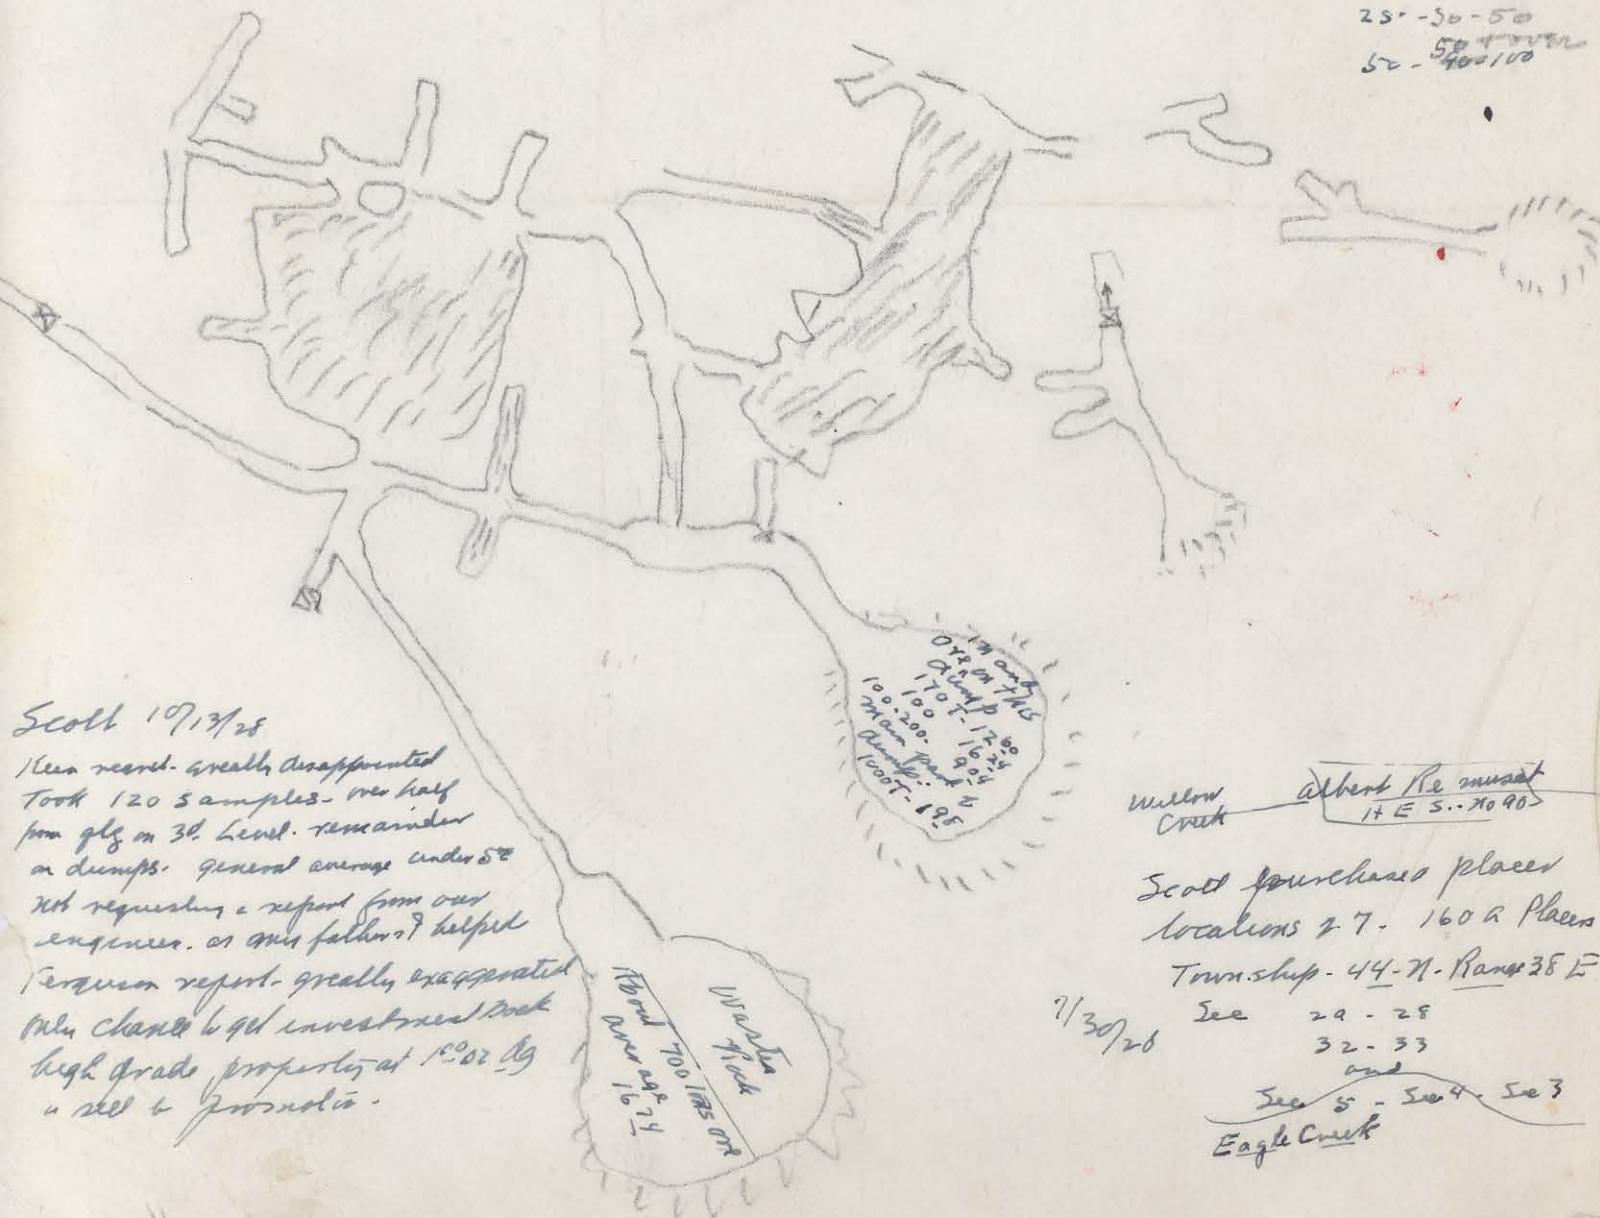 25 - 30 - 50
50 + over
50 - 90-100
Scott 10/13/28
Keen regret - greatly disappointed
Took 120 samples - over half
from on 3d. Level. remainder
on dumps. general average under 5
not requesting a report from our
engineer. as my father helped
Ferguson report - greatly exaggerated
only chance to get investment back
high grade property at 1.00 oz Ag
sell promotio.
ore on this
dump
170 T - 12 60
100 16 24
100-200 - 9 04
main part
dump.
1000 T - 1 98
Waste
Rock
About 700 tons ore
average
16 24
Willow
Creek
Albert Remusat
H E S.. No 90
Scott purchased placer
locations 27. 160 a Placers
Township - 44 - N. Range 38 E
7/30/28
See 29 - 28
32 - 33
and
See 5 - See 4 - See 3
Eagle Creek